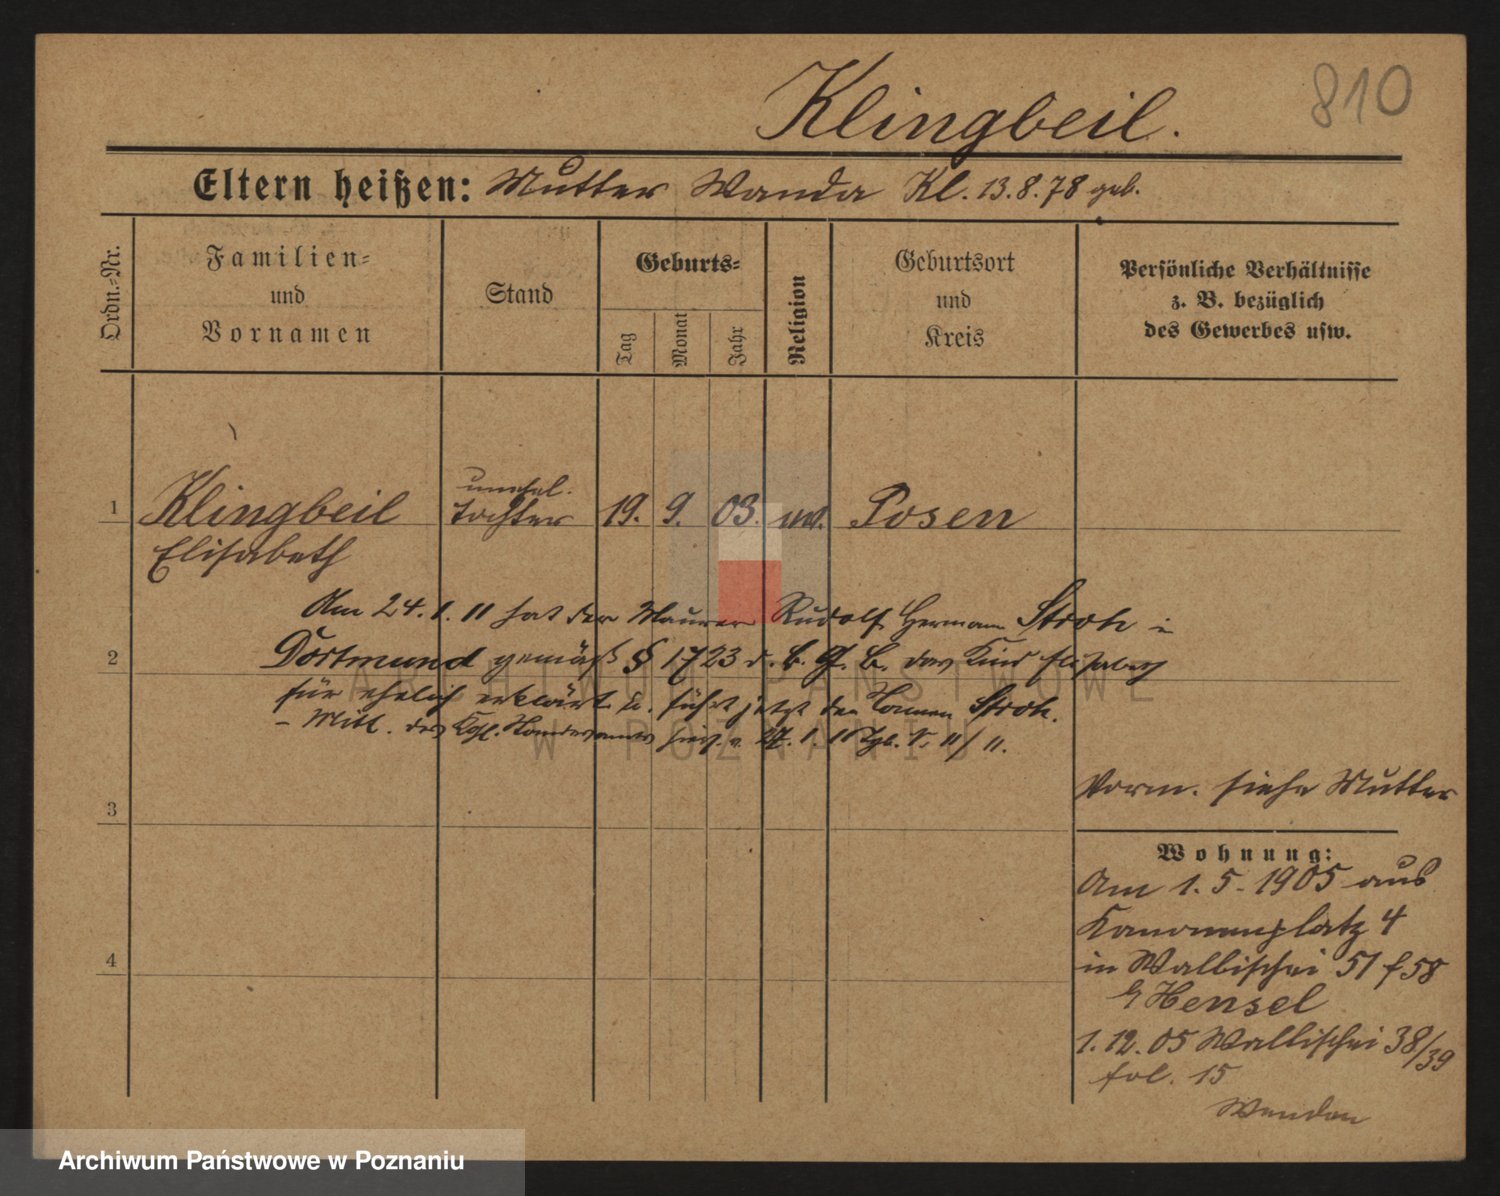 Klingbeil.
810
Eltern heißen: Mutter Wanda Kl. 13.8.78 geb.
Ordn.-Nr.
Familien-
und
Vornamen
Stand
Geburts-
Tag
Monat
Jahr
Religion
Geburtsort
und
Kreis
Persönliche Verhältnisse
z. B. bezüglich
des Gewerbes usw.
unehel.
1 Klingbeil Tochter 19. 9. 03. ev. Posen
Elisabeth
Am 24. 1. 11 hat der Maurer Rudolf Hermann Stroh in
2 Dortmund gemäß § 1723 d. B. G. B. das Kind Elisabeth
für ehelich erklärt u. führt jetzt den Namen Stroh.
- Mitt. des Kgl. Standesamtes hier v. 27. 1. 11 Tgb. V. 11/11.
ARCHIWUM PAŃSTWOWE
W POZNANIU
Vorm. siehe Mutter
3
Wohnung:
Am 1. 5. 1905 aus
Kanonenplatz 4
4 in Wallischei 51 f 58
b/ Hensel
1. 12. 05 Wallischei 38/39
fol. 15
Archiwum Państwowe w Poznaniu